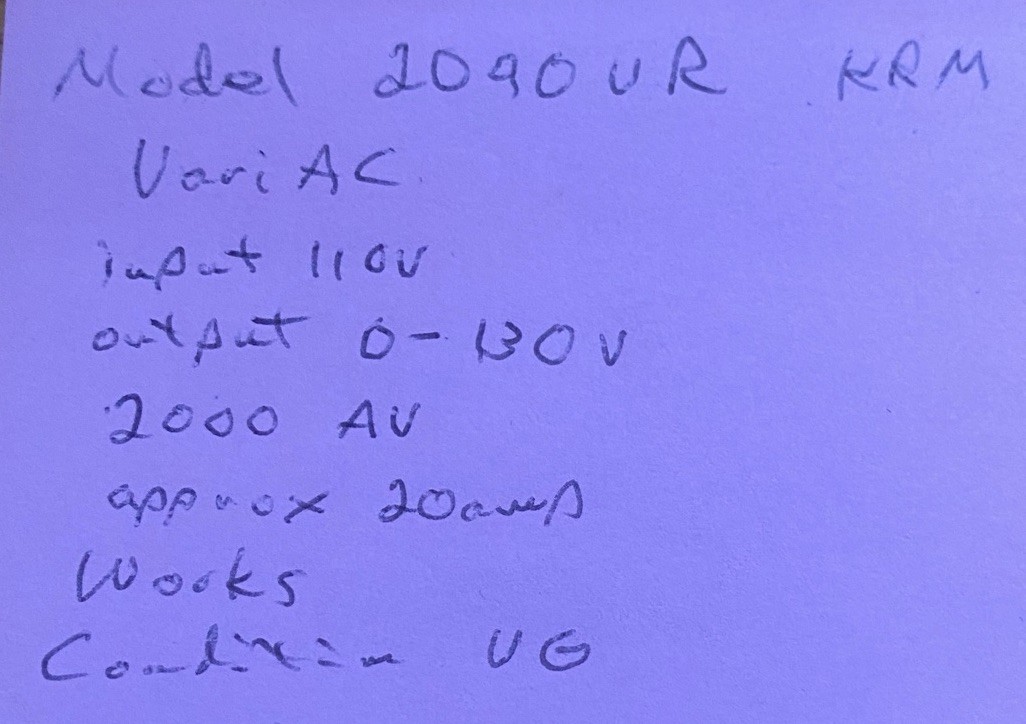 Model 2090VR KRM
VariAC
input 110V
output 0-130V
2000 AV
approx 20amp
Works
Condition VG